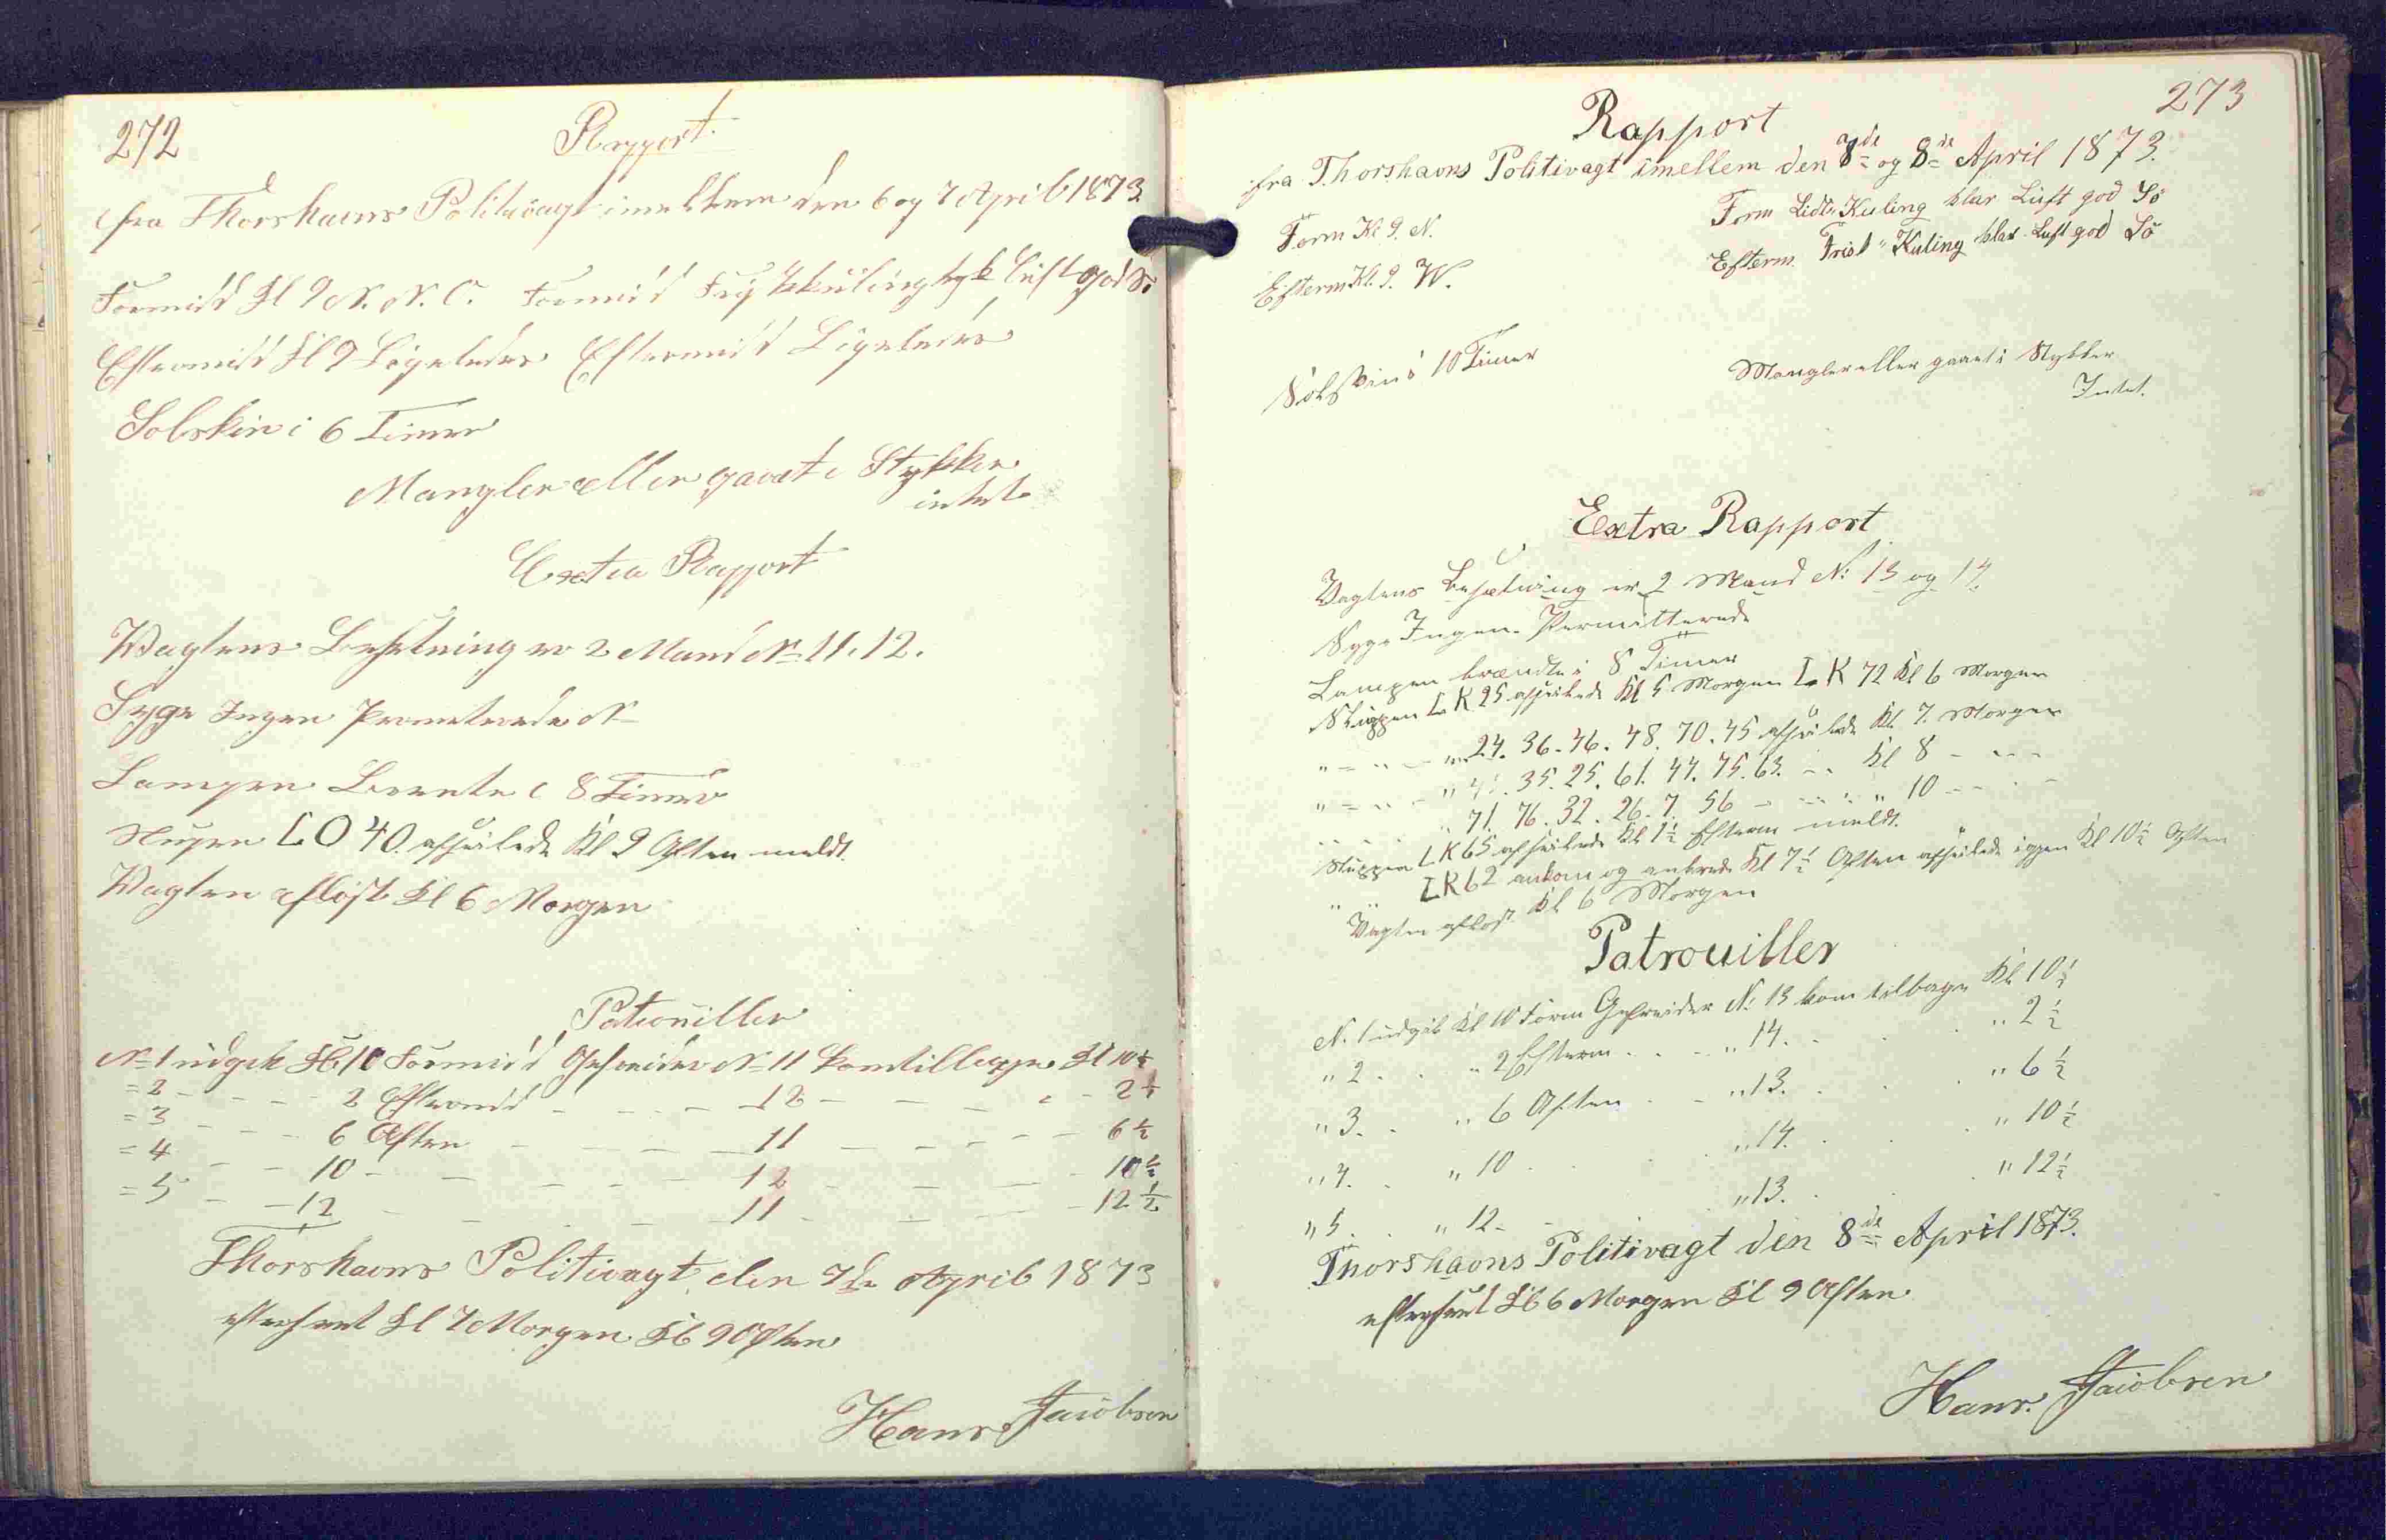 272
Rapport
fra Thorshavns Politivagt imellem den 6 og 7 April 1873
Formidd Kl 9 N. N. O. Formidd Frisk kuling tyk Luft god Sø
Eftermidd Kl 9 Ligeledes Eftermidd Ligeledes
Solskin i 6 Timer
Mangler eller gaaet i Stykker
intet
Extra Rapport
Vagtens Besetning er 2 Mand No 11. 12.
Syge Ingen Permeterede N
Lampen Brente i 8 Timer
Slupen LO 40. afseilede Kl 9 Aften meldt.
Vagten afløst Kl 6 Morgen
Patrouiller
No 1 udgik Kl 10 Formidd Gefreider No 11 kom tilbage Kl 10½
= 2 - - - - 2 Eftermidd - - - - 12 - - - - 2½
= 3 - - - 6 Aften - - - - 11 - - - - 6½
= 4 - - 10 - - - - - 12 - - - 10½
= 5 - - 12 - - - - 11 - - - 12½
Thorshavns Politivagt, den 7de April 1873
efterseet Kl 7 Morgen Kl 9 Aften
Hans Jacobsen
273
Rapport
fra Thorshavns Politivagt imellem den 7de og 8de April 1873.
Form Kl 9. N. Form Lidt Kuling klar Luft god Sö
Efterm Kl. 9. W. Efterm. Frisk Kuling klar Luft god Sö
Solskin i 10 Timer Mangler eller gaaet i Stykker
Intet.
Extra Rapport
Vagtens Besætning er 2 Mand N: 13 og 14.
Syge Ingen. Permitterede
Lampen brændte i 8 Timer
Sluppen LK 25 afseilede Kl 5 Morgen LK 72 Kl 6 Morgen
" = " - 24. 36. 46. 48. 70. 45 afseilede Kl. 7. Morgen
" = " - " 41. 35. 25. 61. 44. 75. 63. - - Kl 8 - - -
71. 76. 32. 26. 7. 56 - - - " 10 - -
Sluppen LK 65 afseilede Kl 1½ Efterm meldt.
" " LK 62 ankom og ankrede Kl 7½ Aften afseilede igjen Kl 10½ Aften
Vagten afløst Kl 6 Morgen
Patrouiller
N. 1 udgik Kl 10 Form Gefreider N. 13 kom tilbage Kl 10½
" 2. . " 2 Efterm. . . " 14. . . " 2½
" 3. . " 6 Aften . . " 13. . . " 6½
" 4. . " 10 . . " 14. . . " 10½
" 5. . " 12 - " 13. . . " 12½
Thorshavns Politivagt den 8de April 1873.
efterseet Kl 6 Morgen Kl 9 Aften
Hans. Jacobsen